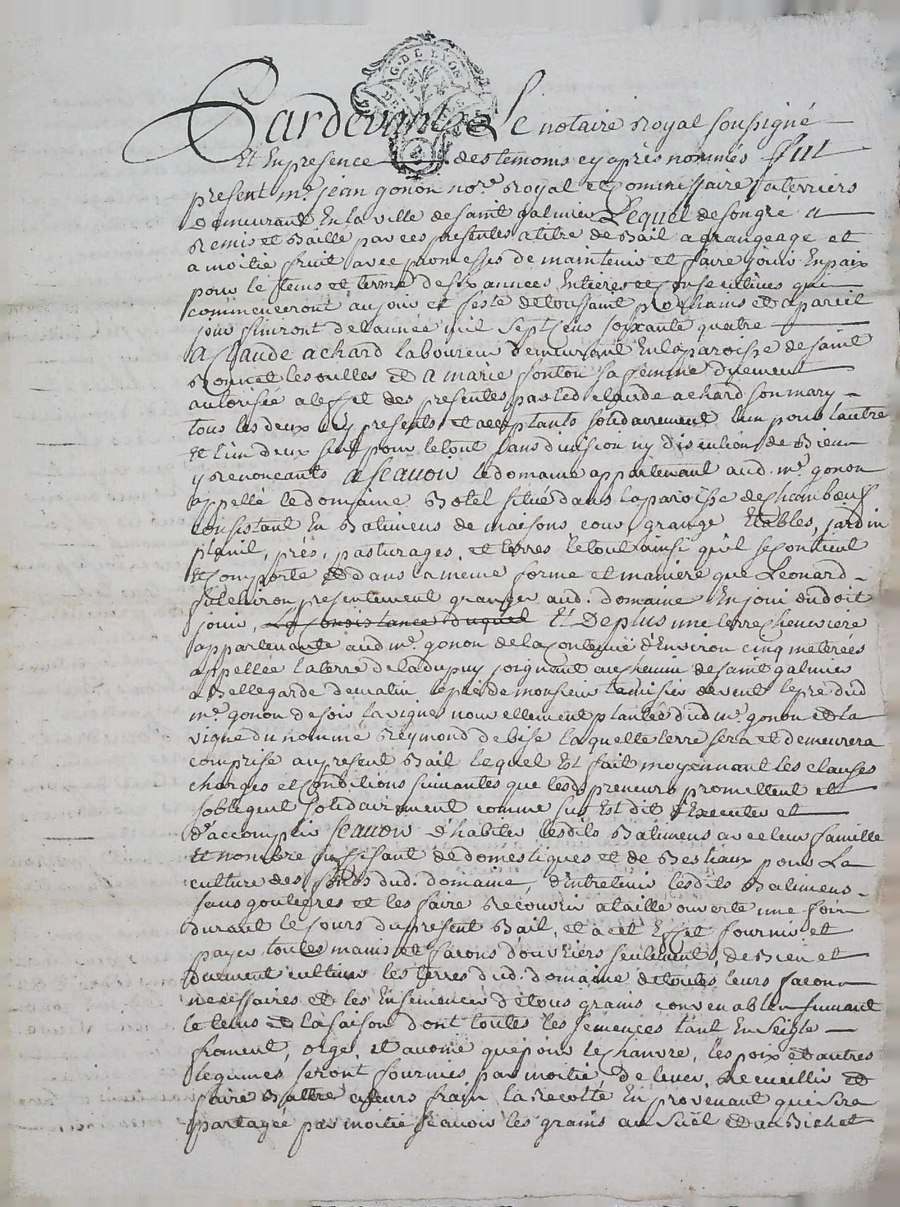 G. DE LYON
Pardevant Le notaire Royal soussigné
Et En presence des temoins cy après nommés fut
present mr. jean gonon nore. Royal et Commissaire a terriers
demeurant En la ville de saint galmier Lequel de son gré a
Remis et Baillé par ces presentes a titre de Bail a grangeage et
a moitié fruit avec promesses de maintenir et faire jouir En paix
pour le tems et terme de six années Entieres et Consecutives qui
commenceront au jour et feste de toussaint prochains et a pareil
jour finiront de l'année mil sept cens soixante quatre
A Claude achard laboureur demeurant En la paroisse de saint
Bonnet les oulles Et A marie fonton sa femme duement
autorisée a l'effet des presentes par led. claude achard son mary
tous les deux icy presents et acceptants solidairement l'un pour l'autre
Et l'un d'eux seul pour le tout sans division ny discution de Biens
y renonceants A Scavoir le domaine appartenant aud. mr. gonon
appellé le domaine Botel situé dans la paroisse de chambœuf
consistant En Batimens de maisons cour grange Etables, jardin
prés, pasturages, et terres le tout ainsi qu'il se contient
Et comporte Et dans la même forme et maniere que Leonard
presentement granger aud. domaine En joui ou doit
jouir, La Consistance duquel Et De plus une terre cheneviere
appartenante aud. mr. gonon de la Contenüe d'Environ cinq meterées
appellée la terre de la dupuy joignant au chemin de saint galmier
a Bellegarde de matin le pré de monsieur de vent le pré dud.
mr. gonon de soir la vigne nouvellement plantée dud. mr. gonon et la
vigne du nommé Reymond de bise laquelle terre sera et demeurera
comprise au present Bail Lequel Est fait moyennant les clauses
charges et Conditions suivantes que lesd. preneurs promettent et
s'obligent solidairement comme sus Est dit d'Executer et
d'accomplir Scavoir d'habiter lesdits Batimens avec leur famille
Et nombre suffisant de domestiques et de Bestiaux pour La
culture des fonds dud. domaine, d'Entretenir lesdits Batimens
sans goutieres et les faire Recouvrir a taille ouverte une fois
durant le cours du present Bail, et a cet Effet fournir et
payer toutes mains et facons d'ouvriers seulement, de Bien et
duement cultiver les terres dud. domaine de toutes leurs facons
necessaires et les Ensemencer de tous grains convenables suivant
le tems et la saison dont toutes les semences tant En seigle
froment, orge, et avoine que pour le chanvre, les poix et autres
legumes seront fournies par moitié, de lever, Recueillir et
faire Battre a leurs frais la Recolte En provenant qui sera
partagée par moitié scavoir les grains au suel et au Bichet